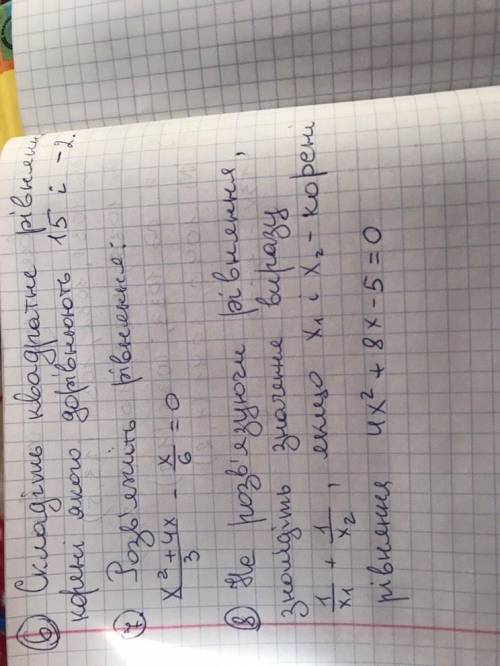 6 Складіть квадратне рівнянн
корені якого дорівнюють 15 і -2.
7. Розв'яжіть рівняння:
x²+4x/3 - x/6 = 0
8 Не розв'язуючи рівняння,
знайдіть значення виразу
1/x₁ + 1/x₂, якщо x₁ і x₂ - корені
рівняння 4x² + 8x - 5 = 0